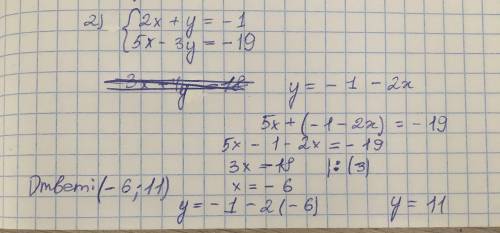 2) { 2x + y = -1
5x - 3y = -19
y = -1 - 2x
5x + (-1 - 2x) = -19
5x - 1 - 2x = -19
3x = -18 |: (3)
x = -6
Ответ: (-6; 11)
y = -1 - 2(-6) y = 11